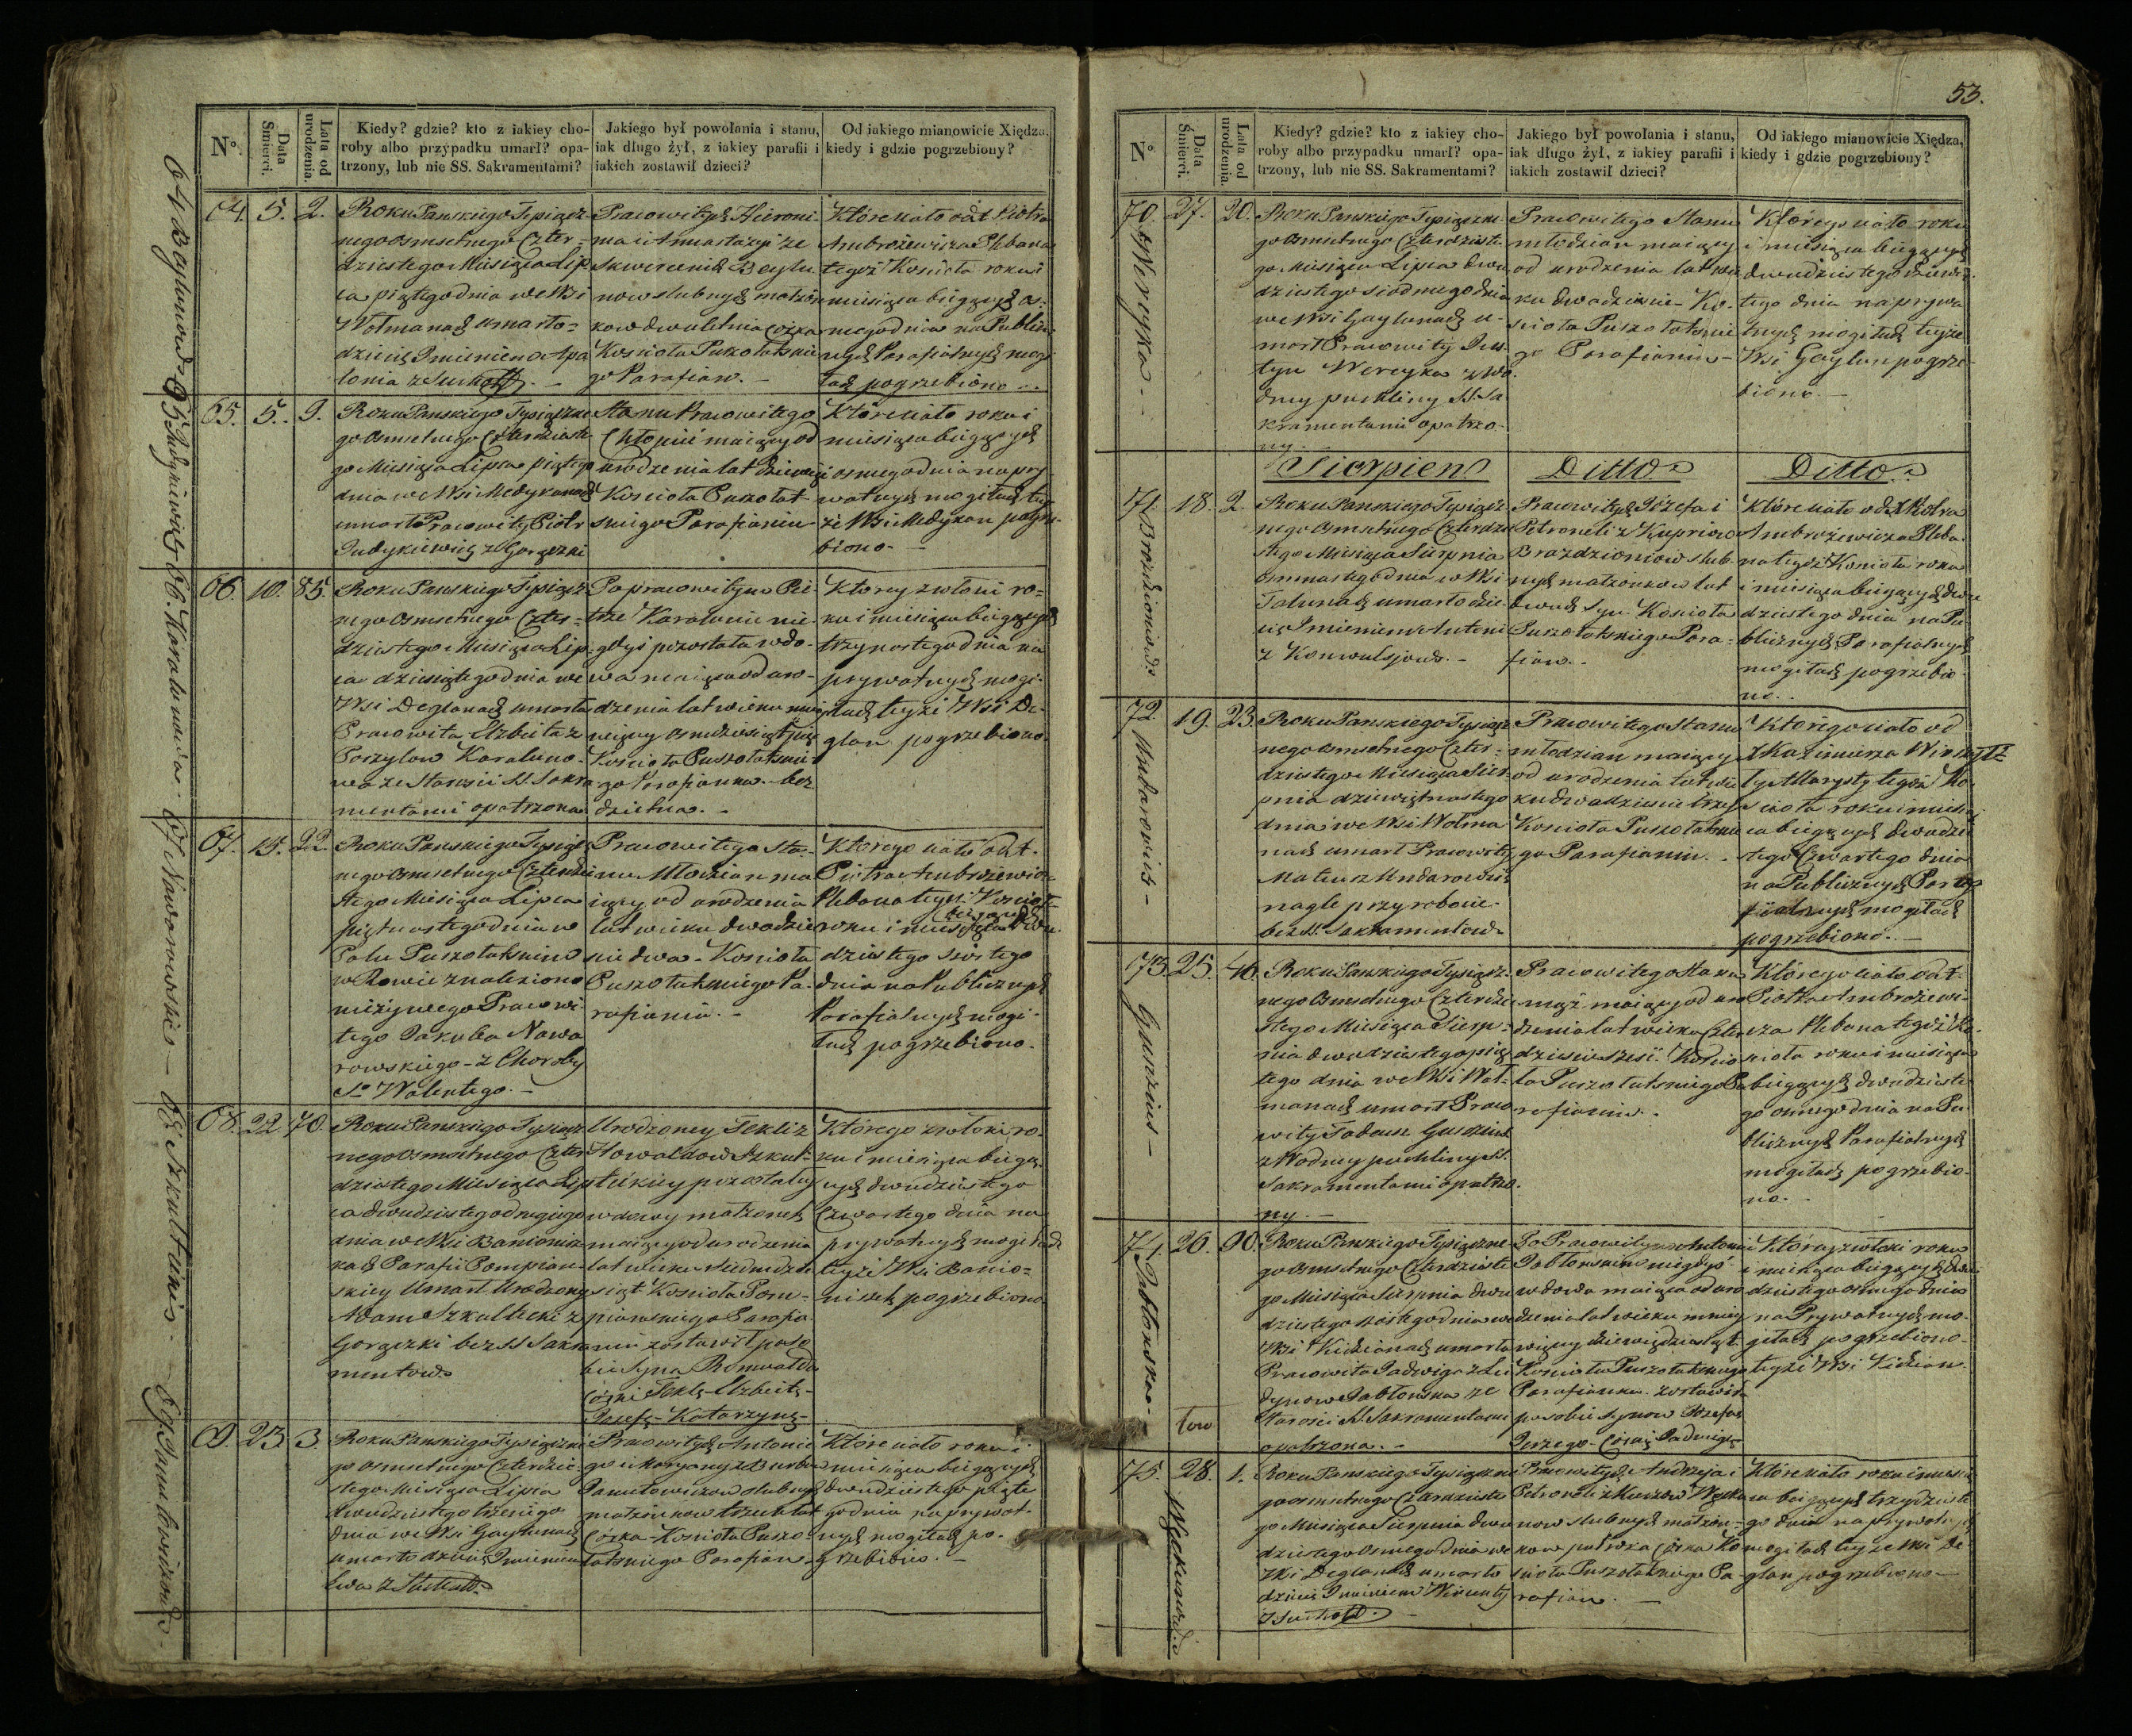 N°
Data Śmierci.
Lata od urodzenia.
Kiedy? gdzie? kto z iakiey cho-
roby albo przypadku umarł? opa-
trzony, lub nie SS. Sakramentami?
Jakiego był powołania i stanu,
iak długo żył, z iakiey parafii i
iakich zostawił dzieci?
Od iakiego mianowicie Xiędza,
kiedy i gdzie pogrzebiony?
64. 5. 2.
Roku Pańskiego Tysiącz-
nego Osmsetnego Czter-
dziestego Miesiąca Lip-
ca piątego dnia we Wsi
Wolmanach umarło
dziecię Imieniem Apo-
lonia z Suchot
Pracowitych Hieroni-
ma i Anastazyi ze
Skwireckich Baylu-
now slubnych małżon-
kow dwuletnia Corka
Kościoła Puszołatskie-
go Parafian.
Które ciało od X Piotra
Ambrożewicza Plebana
tegoż Kościoła roku i
miesiąca biegących
dnia na Publicz-
nych Parafialnych mogi-
łach pogrzebiono
65. 5. 9.
Roku Pańskiego Tysiączne-
go Osmsetnego Czterdzieste-
go Miesiąca Lipca piątego
dnia we Wsi Medykanach
umarł Pracowity Piotr
Judykiewicz z Gorączki
Stanu Pracowitego
Chłopiec maiący od
urodzenia lat dziewięć
Kościoła Puszołat-
skiego Parafianin
Które ciało roku i
miesiąca biegących
osmego dnia na pry-
watnych mogiłach tey-
że Wsi Medykan pogrze-
biono.
66. 10. 85.
Roku Pańskiego Tysiącz-
nego Osmsetnego Czter-
dziestego Miesiąca Lip-
ca dziesiątego dnia we
Wsi Deglanach umarła
Pracowita Elżbieta z
Karaluno-
wa ze Starości SS. Sakra-
mentami opatrzona
Po pracowitym Pie-
trze Karalunie nie-
gdyś pozostała wdo-
wa maiąca od uro-
dzenia lat wieku mniey
więcey osmdziesiąt pięć
Kościoła Puszołatskie-
go Parafianka bez
dzietna.
Którey zwłoki ro-
ku i miesiąca biegących
trzynastego dnia na
prywatnych mogi-
łach teyże Wsi De-
glan pogrzebiono.
67. 15. 22.
Roku Pańskiego Tysiącz-
nego Osmsetnego Czterdzie-
stego Miesiąca Lipca
piętnastego dnia w
Polu Puszołatskim
w Rowie znaleziono
nieżywego Pracowi-
tego Jakuba Nawa-
rowskiego z Choroby
So Walentego.
Pracowitego Sta-
nu Młodzian ma-
iący od urodzenia
lat wieku dwadzie-
ścia dwa Kościoła
Puszołatskiego Pa-
rafianin.
Którego ciało od X.
Piotra Ambrożewicza
Plebana tegoż Kościoła
roku i miesiąca biegących dwu-
dziestego szóstego
dnia na Publicznych
Parafialnych mogi-
łach pogrzebiono.
68. 22. 70.
Roku Pańskiego Tysiącz-
nego Osmsetnego Czter-
dziestego Miesiąca Lip-
ca dwudziestego drugiego
dnia we Wsi Banionisz-
kach Parafii Pompian-
skiey Umarł Urodzony
Adam Szkultecki z
Gorączki bez SS Sakra-
mentow
Urodzoney Tekli z
Szkul-
teckiey pozostałey
wdowy małżonek
maiący od urodzenia
lat wieku siedmdzie-
siąt Kościoła Pom-
pianskiego Parafia-
nin zostawił po so-
bie Syna Romualda
Córki Teklę Elżbietę
Józefę Katarzynę
Którego zwłoki ro-
ku i miesiąca biegą-
cych dwudziestego
Czwartego dnia na
prywatnych mogiłach
teyże Wsi Banio-
niszek pogrzebiono
69. 23. 3.
Roku Pańskiego Tysiączne-
go Osmsetnego Czterdzie-
stego Miesiąca Lipca
dwudziestego trzeciego
dnia we Wsi Gaylunach
umarło dziecię Imieniem
Ewa z Suchot
Pracowitych Antonie-
go i Maryanny z
slubnych
małżonkow trzech lat
Córka Kościoła Puszo-
łatskiego Parafian
Które ciało roku i
miesiąca biegących
dwudziestego piąte-
go dnia na prywat-
nych mogiłach po-
grzebiono.
53.
N°
Data Śmierci.
Lata od urodzenia.
Kiedy? gdzie? kto z iakiey cho-
roby albo przypadku umarł? opa-
trzony, lub nie SS. Sakramentami?
Jakiego był powołania i stanu,
iak długo żył, z iakiey parafii i
iakich zostawił dzieci?
Od iakiego mianowicie Xiędza,
kiedy i gdzie pogrzebiony?
70. 27. 20.
Wereyka
Roku Pańskiego Tysiączne-
go Osmsetnego Czterdzieste-
go Miesiąca Lipca dwu-
dziestego siódmego dnia
we Wsi Gaylunach u-
marł Pracowity Jus-
tyn Wereyka z Wo-
dney puchliny SS. Sa-
kramentami opatrzo-
ny.
Pracowitego Stanu
młodzian maiący
od urodzenia lat wie-
ku dwadzieścia Ko-
ścioła Puszołatskie-
go Parafianin
Którego ciało roku
i miesiąca biegących
dwudziestego dziewią-
tego dnia na prywa-
tnych mogiłach teyże
Wsi Gaylun pogrze-
biono.
Sierpień. Ditto Ditto
71. 18. 2.
Roku Pańskiego Tysiącz-
nego Osmsetnego Czterdzie-
stego Miesiąca Sierpnia
osmnastego dnia w Wsi
Tolunach umarło dzie-
cię Imieniem Antoni
z Konwulsjow.
Pracowitych Józefa i
Petroneli z Kupriow
Brazdzioniow slub-
nych małżonkow lat
dwuch Syn Kościoła
Puszołatskiego Para-
fian.
Które ciało od X Piotra
Ambrożewicza Pleba-
na tegoż Kościoła roku
i miesiąca biegących dwu-
dziestego dnia na Pu-
blicznych Parafialnych
mogiłach pogrzebio-
no.
72. 19. 23.
Roku Pańskiego Tysiącz-
nego Osmsetnego Czter-
dziestego Miesiąca Sier-
pnia dziewiętnastego
dnia we Wsi Wolma-
nach umarł Pracowity
Mateusz Undarowicz
nagle przy robocie
bez SS. Sakramentow
Pracowitego Stanu
młodzian maiący
od urodzenia lat wie-
ku dwadzieścia trzy
Kościoła Puszołatskie-
go Parafianin.
Którego ciało od
X Kazimierza
tegoż Ko-
ścioła roku i miesią-
ca biegących dwudzie-
stego Czwartego dnia
na Publicznych Para-
fialnych mogiłach
pogrzebiono.
73. 25. 46.
Roku Pańskiego Tysiącz-
nego Osmsetnego Czterdzie-
stego Miesiąca Sierp-
nia dwudziestego pią-
tego dnia we Wsi Wol-
manach umarł Praco-
wity Tadeusz
z Wodney puchliny SS.
Sakramentami opatrzo-
ny.
Pracowitego Stanu
mąż maiący od uro-
dzenia lat wieku Czter-
dzieści sześć Kościo-
ła Puszołatskiego Pa-
rafianin.
Którego ciało od X.
Piotra Ambrożewi-
cza Plebana tegoż Ko-
ścioła roku i miesiąca
biegących dwudzieste-
go osmego dnia na Pu-
blicznych Parafialnych
mogiłach pogrzebio-
no.
74. 26. 90.
Jabłońska
Roku Pańskiego Tysiączne-
go Osmsetnego Czterdzieste-
go Miesiąca Sierpnia dwu-
dziestego szóstego dnia we
Wsi Kidzianach umarła
Pracowita Jadwiga z
Jabłońska ze
Starości SS. Sakramentami
opatrzona.
Po Pracowitym Antonim
Jabłońskim niegdyś
wdowa maiąca od uro-
dzenia lat wieku mniey
więcey dziewięćdziesiąt
Kościoła Puszołatskiego
Parafianka zostawiła
po sobie Synow Józefa
Jerzego Córkę Jadwigę
Którey zwłoki roku
i miesiąca biegących dwu-
dziestego osmego dnia
na Prywatnych mo-
giłach pogrzebiono
teyże Wsi Kidzian
75. 28. 1.
Roku Pańskiego Tysiączne-
go Osmsetnego Czterdzieste-
go Miesiąca Sierpnia dwu-
dziestego osmego dnia we
Wsi Deglanach umarło
dziecię Imieniem Wincenty
z Suchot.
Pracowitych Andrzeja i
Petroneli z
slubnych małżon-
kow półroczna Córka Ko-
ścioła Puszołatskiego Pa-
rafian.
Które ciało roku i miesią-
ca biegących trzydzieste-
go dnia na prywatnych
mogiłach teyże Wsi De-
glan pogrzebiono